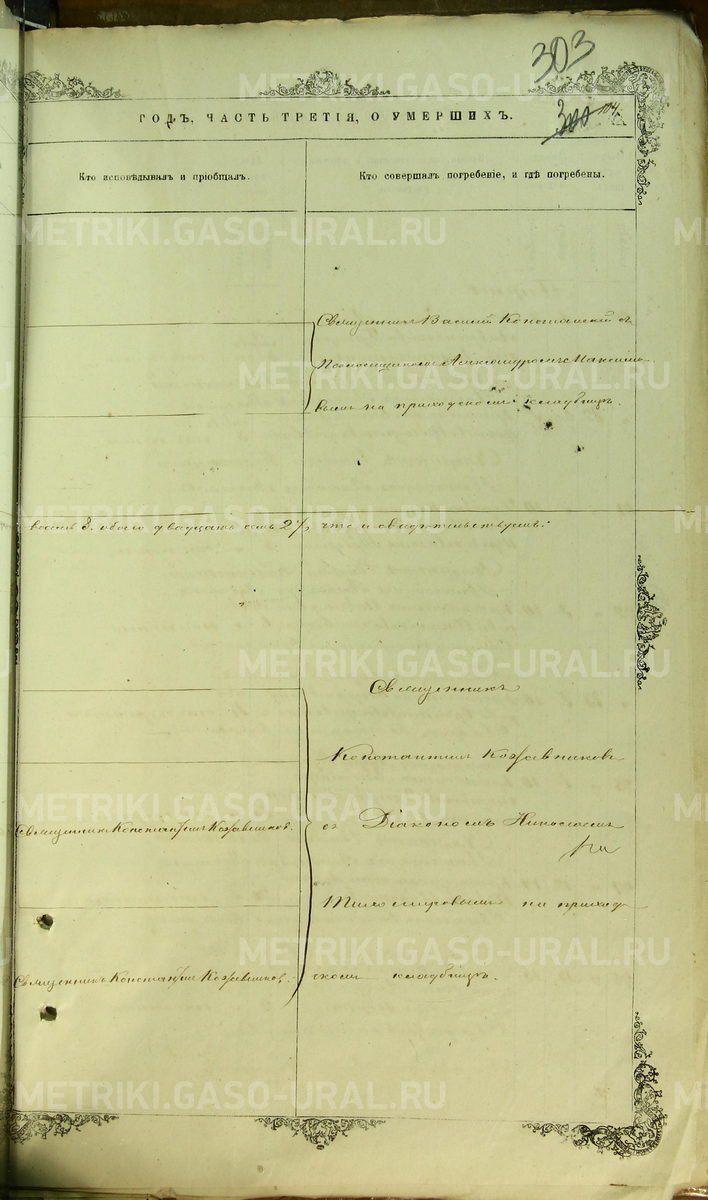 303
300
ГОДЪ, ЧАСТЬ ТРЕТІЯ, О УМЕРШИХЪ.
Кто исповѣдывалъ и пріобщалъ.
Кто совершалъ погребеніе, и гдѣ погребены.
Священникъ Василій съ
Псаломщикомъ Александромъ Максимо-
вымъ на приходскомъ кладбищѣ.
восемь 8. обоего двадцать семь 27, что и свидѣтельствуемъ:
Священникъ
Константинъ Кожевниковъ
Священникъ Константинъ Кожевниковъ.
съ Діакономъ Николаемъ
Тихомировымъ на приход-
Священникъ Константинъ Кожевниковъ.
скомъ кладбищѣ.
METRIKI.GASO-URAL.RU